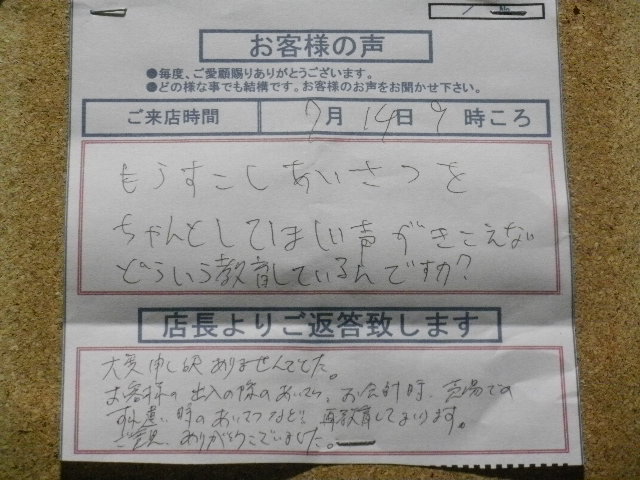 No.
お客様の声
●毎度、ご愛顧賜りありがとうございます。
●どの様な事でも結構です。お客様のお声をお聞かせ下さい。
ご来店時間 7月14日9時ころ
もうすこしあいさつを
ちゃんとしてほしい声がきこえない
どういう教育しているんですか?
店長よりご返答致します
大変申し訳ありませんでした。
お客様の出入の際のあいさつ、お会計時、売場での
すれ違い時のあいさつなどを再教育してまいります。
ご意見ありがとうございました。